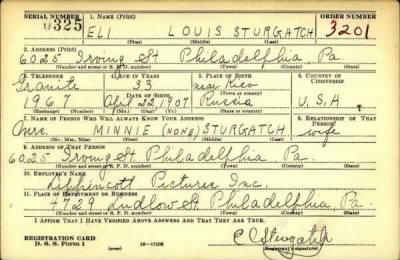 SERIAL NUMBER 1. NAME (Print) ORDER NUMBER
0325 ELI LOUIS STURGATCH 3201
(First) (Middle) (Last)
2. ADDRESS (Print)
6025 Irving St Philadelphia, Pa
(Number and street or R. F. D. number) (Town) (County) (State)
3. TELEPHONE 4. AGE IN YEARS 5. PLACE OF BIRTH 6. COUNTRY OF CITIZENSHIP
Granite 33 near Kiev
DATE OF BIRTH (Town or county)
1967 April 22, 1907 Russia U.S.A
(Exchange) (Number) (Mo.) (Day) (Yr.) (State or country)
7. NAME OF PERSON WHO WILL ALWAYS KNOW YOUR ADDRESS 8. RELATIONSHIP OF THAT PERSON
Mrs. MINNIE (NONE) STURGATCH wife
(Mr., Mrs., Miss) (First) (Middle) (Last)
9. ADDRESS OF THAT PERSON
6025 Irving St Philadelphia Pa.
(Number and street or R. F. D. number) (Town) (County) (State)
10. EMPLOYER'S NAME
Lippincott Pictures Inc.
11. PLACE OF EMPLOYMENT OR BUSINESS
4729 Ludlow St Philadelphia, Pa.
(Number and street or R. F. D. number) (Town) (County) (State)
I AFFIRM THAT I HAVE VERIFIED ABOVE ANSWERS AND THAT THEY ARE TRUE.
REGISTRATION CARD
D. S. S. Form 1 (over) 16-17105 (Registrant's signature)